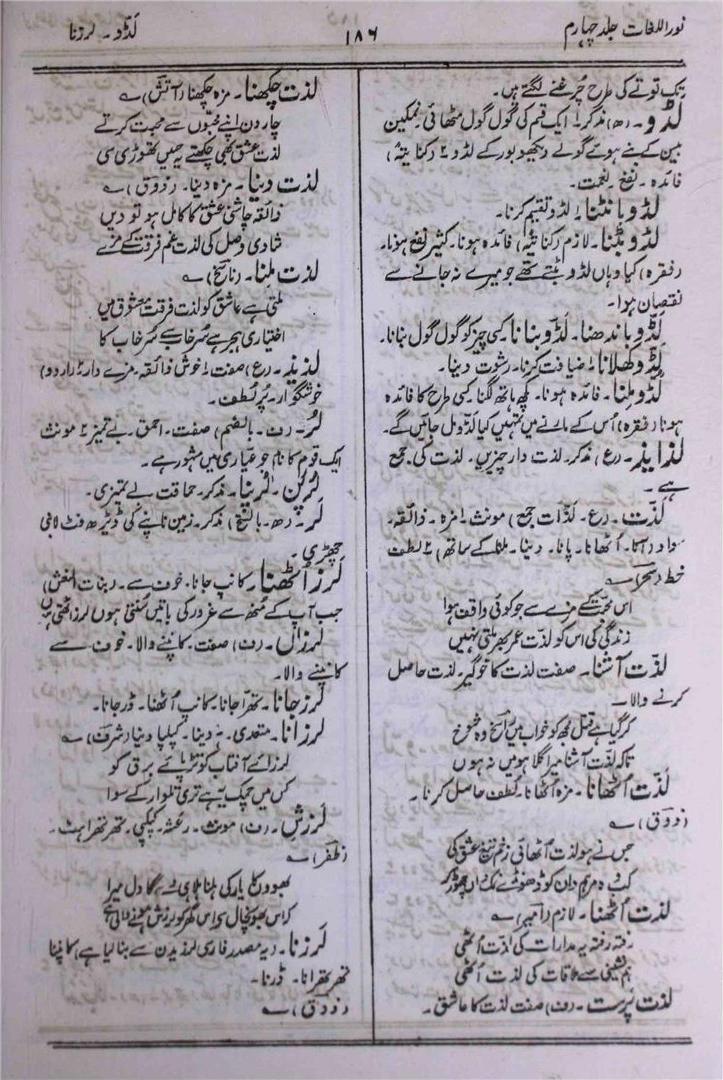 نور اللغات جلد چہارم
۱۸۶
لڈو۔ لرزنا
تک توتے کی طرح چُرغنے لگتے ہیں۔
لڈو۔ (ھ) مذکر ۱۔ ایک قسم کی گول گول مٹھائی نمکین
بیسن کے بنے ہوئے گولے دیکھو بور کے لڈو ۲ (کنایۃً)
فائدہ۔ نفع۔ نعمت۔
لڈو بانٹنا۔ لڈو تقسیم کرنا۔
لڈو بٹنا۔ لازم (کنایۃً) فائدہ ہونا۔ کثیر نفع ہونا۔
(فقرہ) کیا وہاں لڈو بٹتے تھے جو میرے نہ جانے سے
نقصان ہوا۔
لڈو باندھنا۔ لڈو بنانا کسی چیز کو گول گول بنانا۔
لڈو کھلانا ۱۔ ضیافت کرنا۔ رشوت دینا۔
لڈو ملنا۔ فائدہ ہونا۔ کچھ ہاتھ لگنا کسی طرح کا فائدہ
ہونا (فقرہ) اُس کے مارنے میں تمہیں کیا لڈو مل جائیں گے۔
لذایذ۔ (ع) مذکر۔ لذت دار چیزیں۔ لذت کی جمع
ہے۔
لذّت۔ (ع۔ لذّات جمع) مونث ۱۔ مزہ۔ ذائقہ۔
سواد (آنا۔ اُٹھانا۔ پانا۔ دینا۔ ملنا کے ساتھ) ۲ لطف
خط (سحر) ؎
اس محبت کے مزے سے جو کوئی واقف ہوا
زندگی کی اس کو لذت عمر بھر ملتی نہیں
لذّت آشنا۔ صفت لذت کا خوگیر۔ لذت حاصل
کرنے والا۔
کر گیا ہے قتل مجھ کو خواب میں ناسخ وہ شوخ
تا کہ لذت آشنا میرا گلا ہو میں نہ ہوں
لذّت اُٹھانا۔ مزہ اُٹھانا۔ لطف حاصل کرنا۔
(ذوق) ؎
جس نے ہو لذت اُٹھائی زخم تیغ عشق کی
کب وہ مرہم دان کو ڈھونڈے نمکداں چھوڑ کر
لذت اُٹھنا۔ لازم (امیر) ؎
رفتہ رفتہ یہ مدارات کی لذت اُٹھی
ہم نشینی سے ملاقات کی لذت اُٹھی
لذت پرست۔ (ف) صفت لذت کا عاشق۔
لذت چکھنا۔ مزہ چکھنا (آتش) ؎
چار دن اپنے محبوں سے محبت کرتے
لذت عشق بھی چکھتے یہ حسیں تھوڑی سی
لذت دینا۔ مزہ دینا۔ (ذوق) ؎
ذائقہ چاشنی عشق کا کامل ہو تو دیں
شادی وصل کی لذت غم فرقت کے مزے
لذت ملنا۔ (ناسخ) ؎
ملتی ہے عاشق کو لذت فرقت معشوق میں
اختیاری ہجر ہے سُرخاب سے سُرخاب کا
لذیذ۔ (ع) صفت ۱۔ خوش ذائقہ۔ مزے دار ۲ (اردو)
خوشگوار۔ پُر لطف۔
لُر۔ (ف۔ بالضم) صفت۔ احمق۔ بے تمیز ۲ مونث
ایک قوم کا نام جو عیاری میں مشہور ہے۔
لُرپن۔ لُرپنا۔ مذکر۔ حماقت بے تمیزی۔
لَر۔ (ھ۔ بالفتح) مذکر۔ زمین ناپنے کی ڈیڑھ فٹ لانبی
چھڑی۔
لرز اُٹھنا۔ کانپ جانا۔ خوف سے۔ (بنات النعش)
جب آپ کے مُنھ سے غرور کی باتیں سُنتی ہوں لرز اٹھتی ہوں
لرزاں۔ (ف) صفت۔ کانپنے والا۔ خوف سے
کانپنے والا۔
لرز جانا۔ تھرّا جانا۔ کانپ اُٹھنا۔ ڈر جانا۔
لرزانا۔ متعدی۔ دینا۔ کپکپا دینا (شرف) ؎
لرزائے آفتاب کو تڑپائے برق کو
کس میں چمک یہ ہے تری تلوار کے سوا
لرزش۔ (ف) مونث۔ رعشہ۔ کپکپی۔ تھرتھراہٹ۔
(ظفر) ؎
بھووں کا یار کی ہلنا ہلا ہی دے گا دل میرا
کہ اس بھونچال سے اس گھر کو لرزش ہونے والی ہے
لرزنا۔ (یہ مصدر فارسی لرزیدن سے بنا لیا ہے) کانپنا
تھرتھرانا۔ ڈرنا۔
(ذوق) ؎